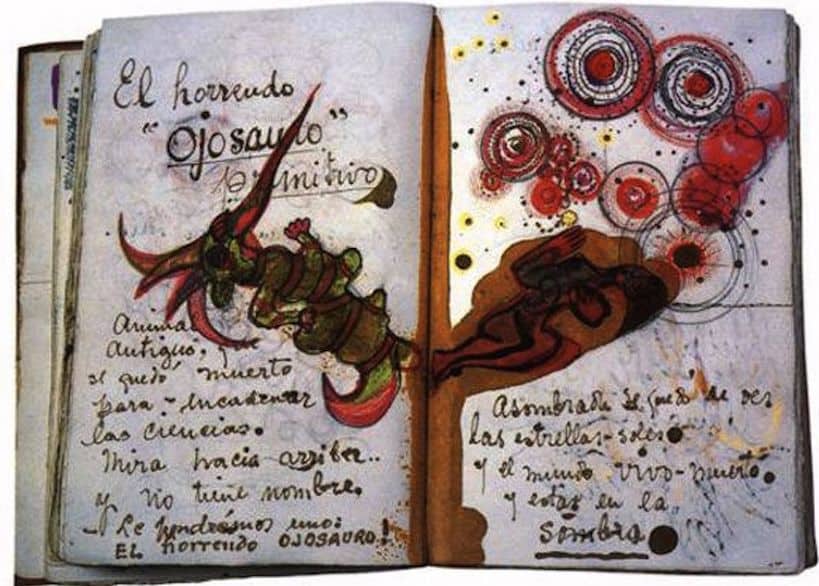 El horrendo
"Ojosauro"
primitivo
Animal
antiguo, que
se quedó muerto
para encadenar
las ciencias.
Mira hacia arriba..
y no tiene nombre.
- Le pondremos uno:
EL horrendo OJOSAURO!
Asombrada se quedó de ver
las estrellas-soles
y el mundo vivo-muerto
y estar en la
sombra